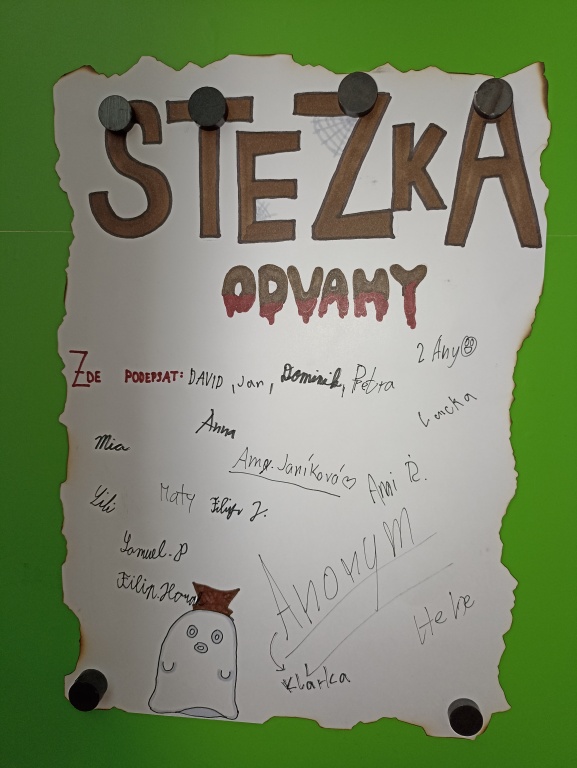 STEZKA
ODVAHY
2 Any
ZDE PODEPSAT: DAVID, Jan, Dominik, Petra
Lucka
Anna
Mia
Ama. Janíková
Ami Ř.
Lili Maty Filip J.
Samuel. P
Anonym
Filip.
Hele
Klárka